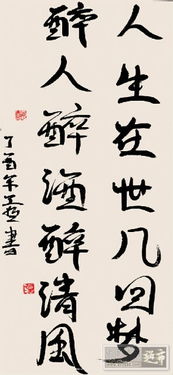 人生在世几回梦
醉人醉酒醉清风
丁酉年
书